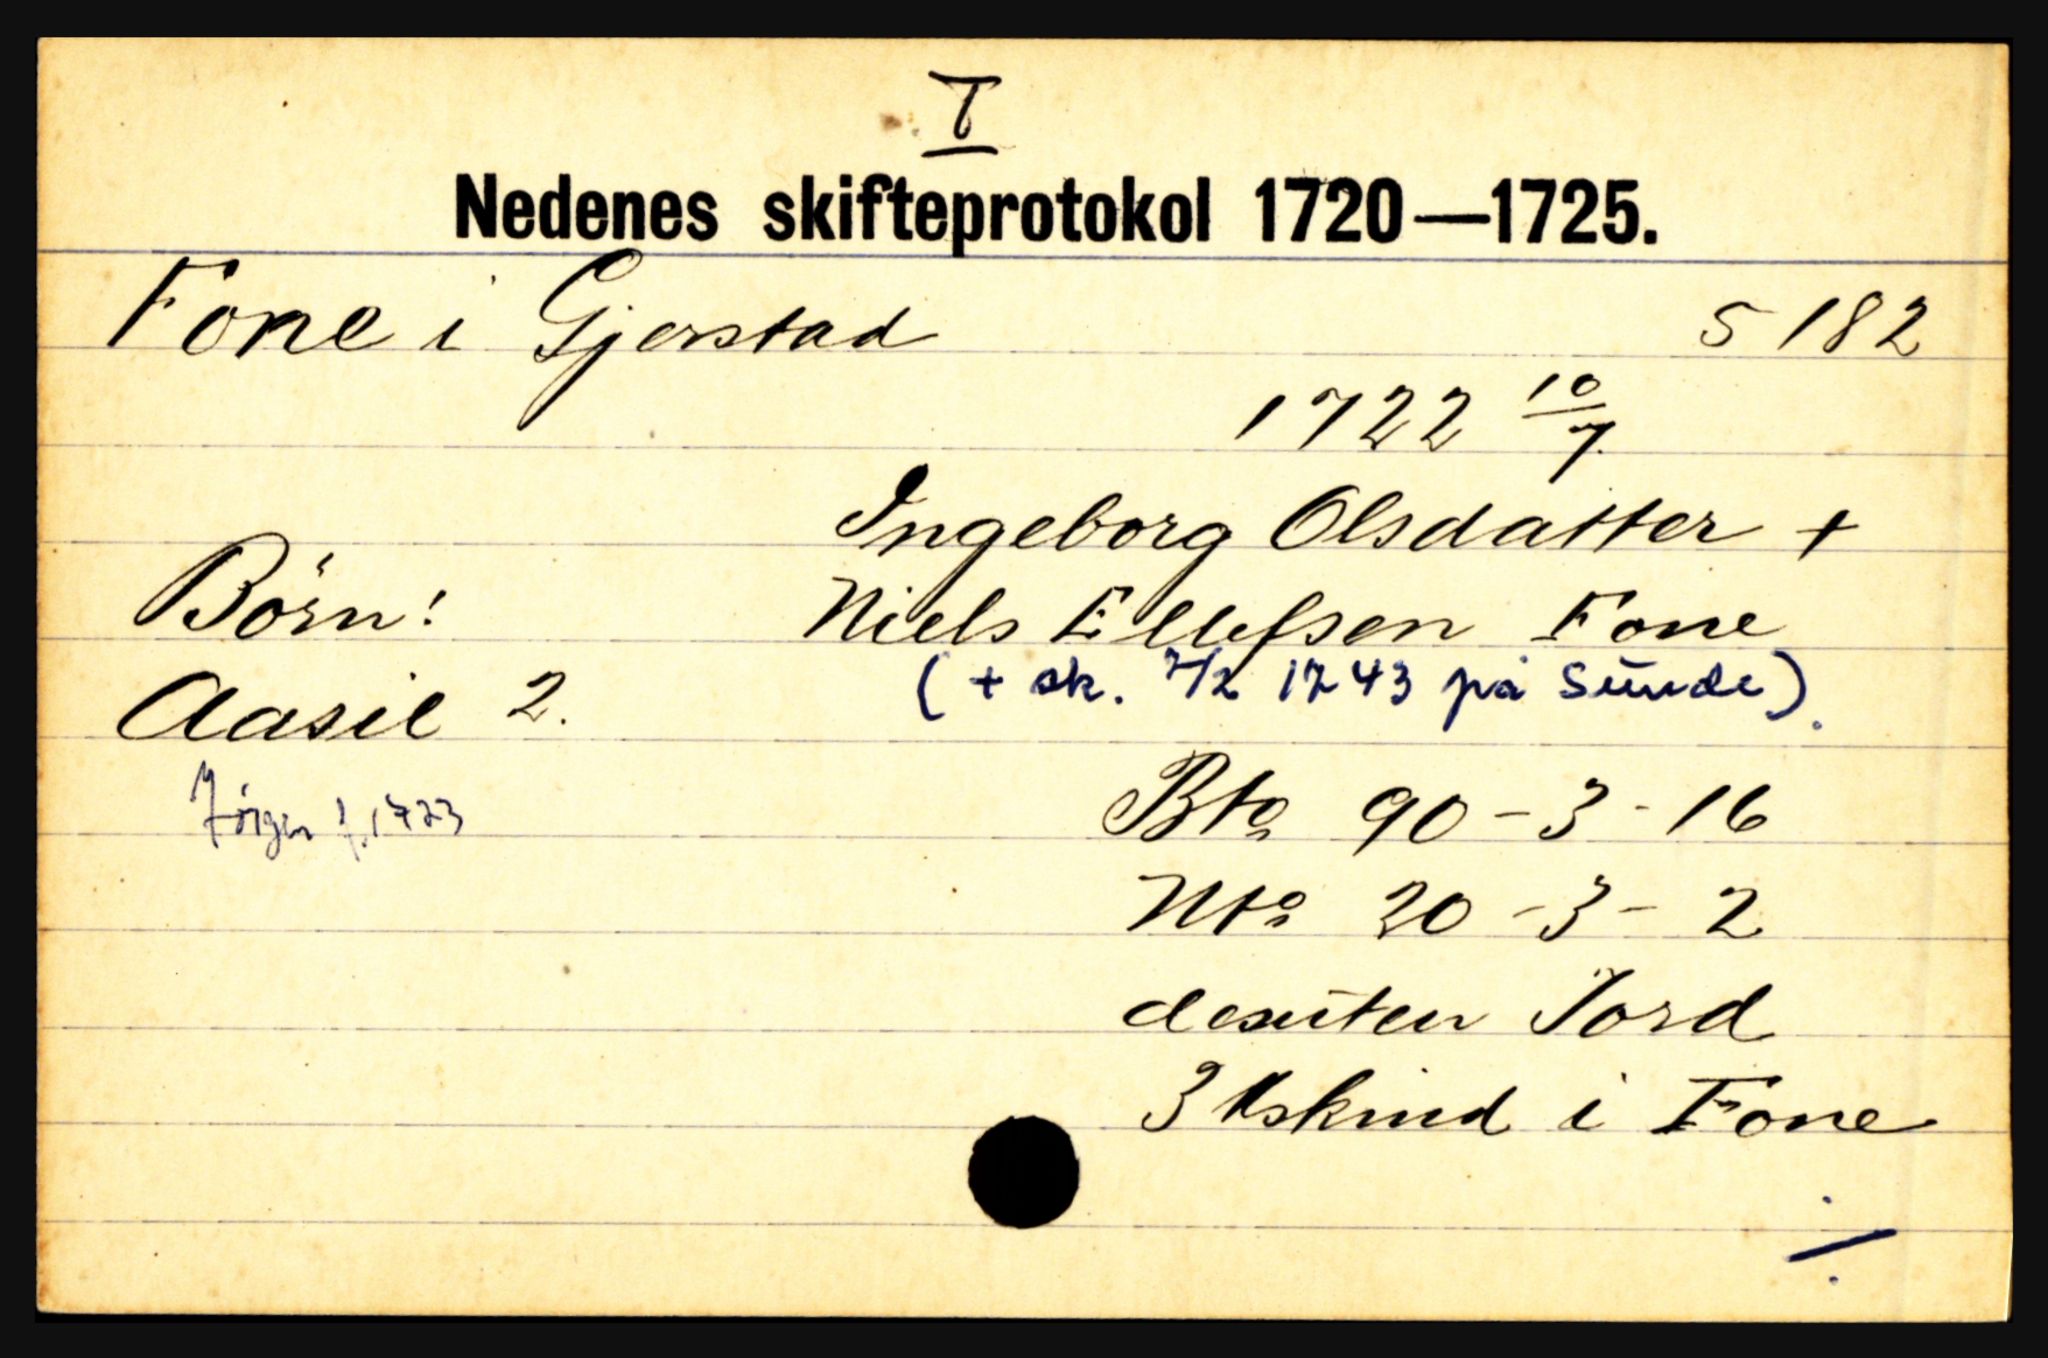 I
Nedenes skifteprotokol 1720—1725.
Fone i Gjerstad 5 182
1722 10/7.
Ingeborg Olsdatter +
Börn: Niels Ellefsen Fone
(+ sk. 7/2 1743 på Sünde).
Aasil 2.
Jörgen f. 1723
Bto 90 - 3 - 16
Nto 20 - 3 - 2
desüten Jord
3 kskind i Fone